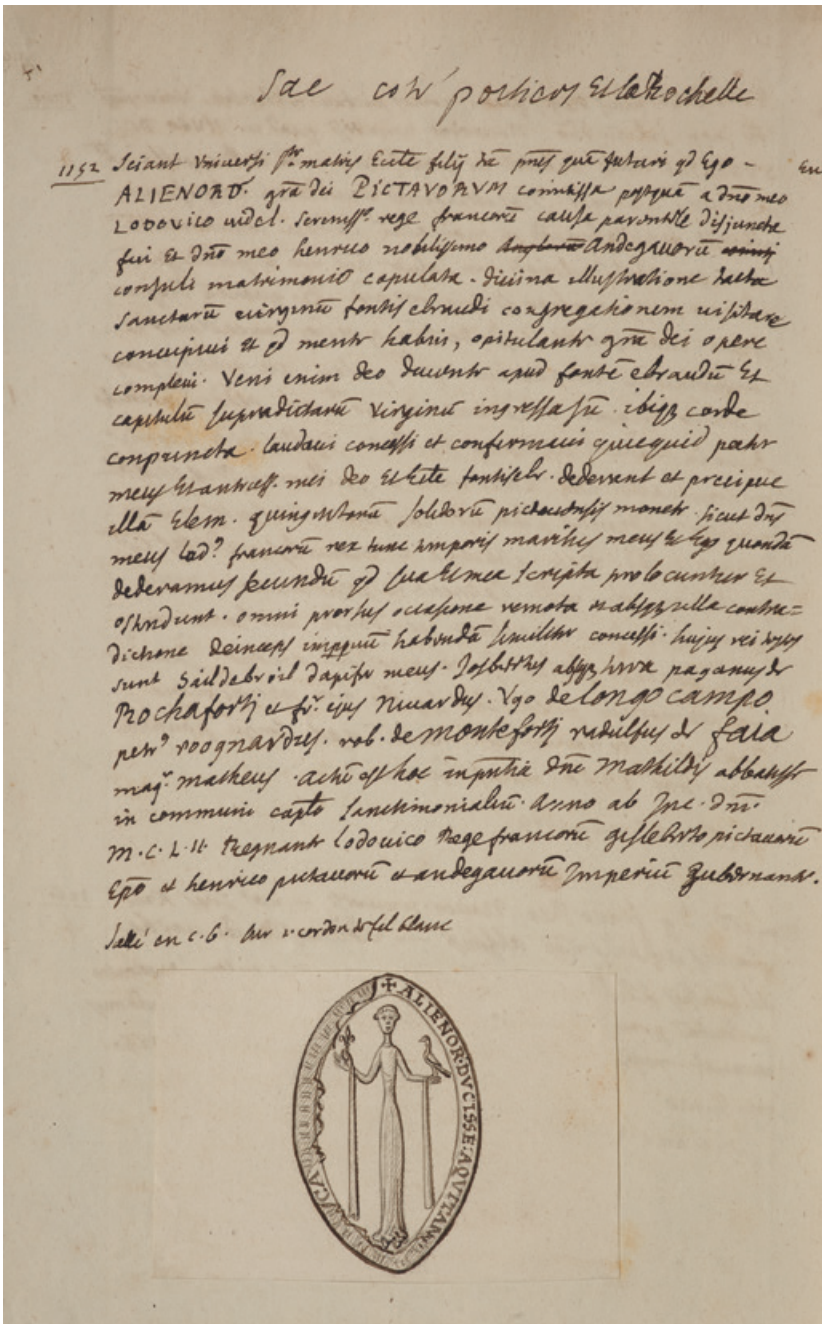 Sac coté porticus Et la Rochelle
1152 Sciant Universi s^te matris Eccle filij tā pñtes quā futuri qd Ego - En
ALIENORD. grā dei PICTAVORVM comitissa postquā a dño meo
LODOVICO videl. sereniss°. rege francorū causa parentele disjuncta
fui Et dño meo henrico nobilissimo Andegavorū
consuli matrimonio copulata. divina illustratione tacta
sanctarū virginū fontis ebraudi congregationem visitare
concupivi Et qd mente habui, opitulante grā dei opere
complevi. Veni enim deo ducente apud fontē ebraudū Et
capitulū supradictarū virginū ingressa sū. ibiqz corde
conpuncta. laudavi concessi et confirmavi quicquid pater
meus Et antecess. mei deo Et Eccle fontisebr. dederant et precipue
illā Elem. quingentorū solidorū pictavensis monete. sicut dñs
meus lod° francorū rex tunc temporis maritus meus Et Ego quondā
dederamus secundū qd sua Et mea scripta proloquntur Et
ostendunt. omni prorsus ocasione remota et absqz ulla contra=
dictione deinceps imppetuū habendā similiter concessi. hujus rei testes
sunt Saildebroil dapifer meus. Josbertus absqz terra paganus de
Rochaforti et fr. ejus Nivardus. Ugo de longo campo
petr° roognardus. rob. de monteforti radulfus de faia
mag. matheus. actū est hoc in pñtia dñe Mathildis abbatisse
in communi capto sanctimonialiū. Anno ab Inc. dñi.
M.C.L.II. Regnante lodovico Rege francorū gisleberto pictavorū
Epō et henrico pictavorū et andegavorū Imperiū Gubernante.
scellé en c. b. sur 1 cordon de fil blanc
✠ ALIENOR: DVCISSE: AQVITANO